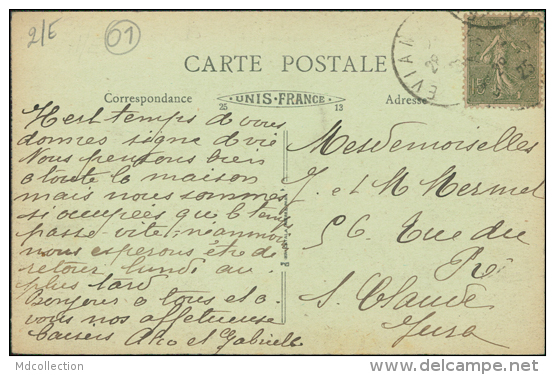 2/E
01
CARTE POSTALE
EVIAN
Correspondance
25 UNIS-FRANCE 13
Adresse
Il est temps de vous
donner signe de vie
Nous pensons bien
a toute la maison
mais nous sommes
si occupées que le temps
passe vite, néanmoins
nous esperons être de
retour lundi au
plus tard
Bonjour a tous et a
vous nos affectueuse
baisers et Gabrielle
Mesdemoiselles
J. et M Mermet
56 Rue du
Pré
S. Claude
Jura
Mdcollection
www.delcampe.net